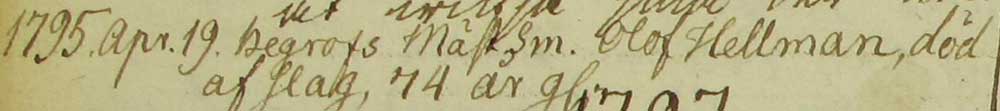 1795. Apr. 19. Begrofs Mäst. Sm. Olof Hellman, död
af slag, 74 år gl.
1797